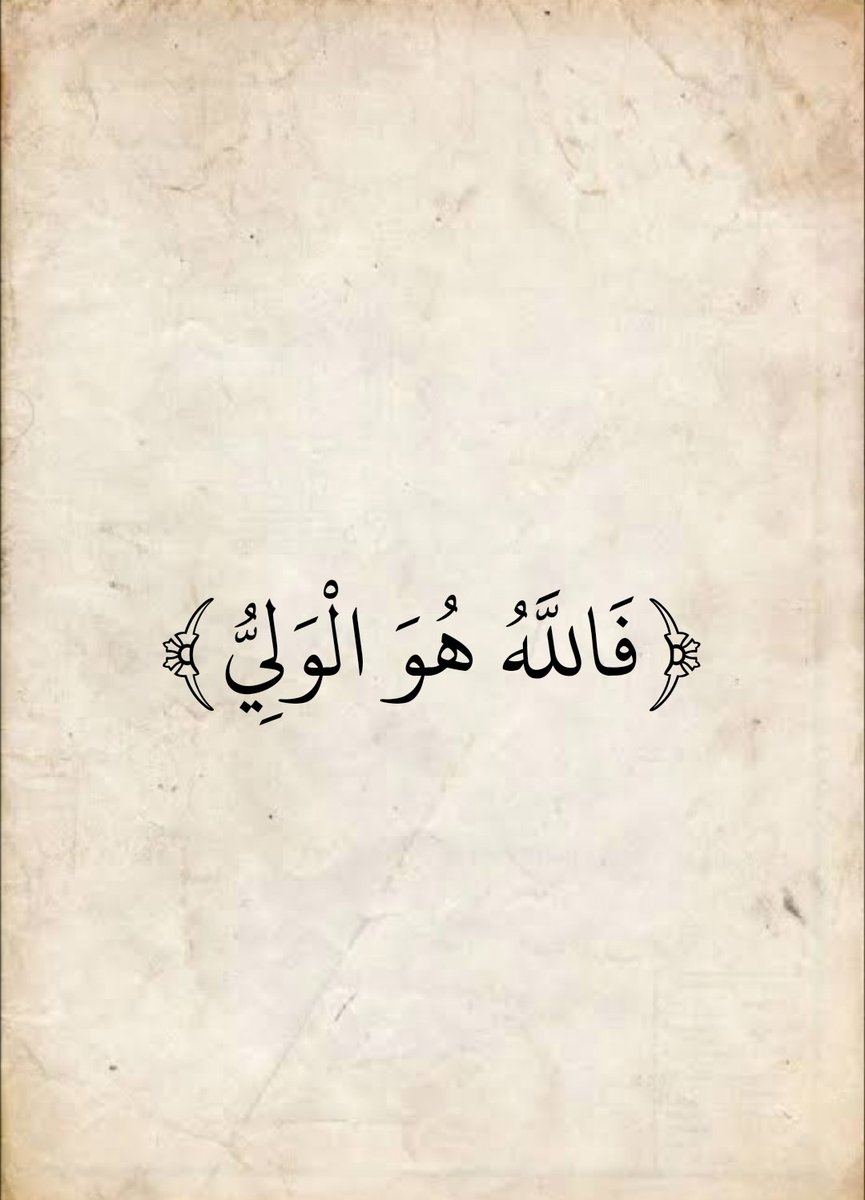 ﴿فَاللَّهُ هُوَ الْوَلِيُّ﴾